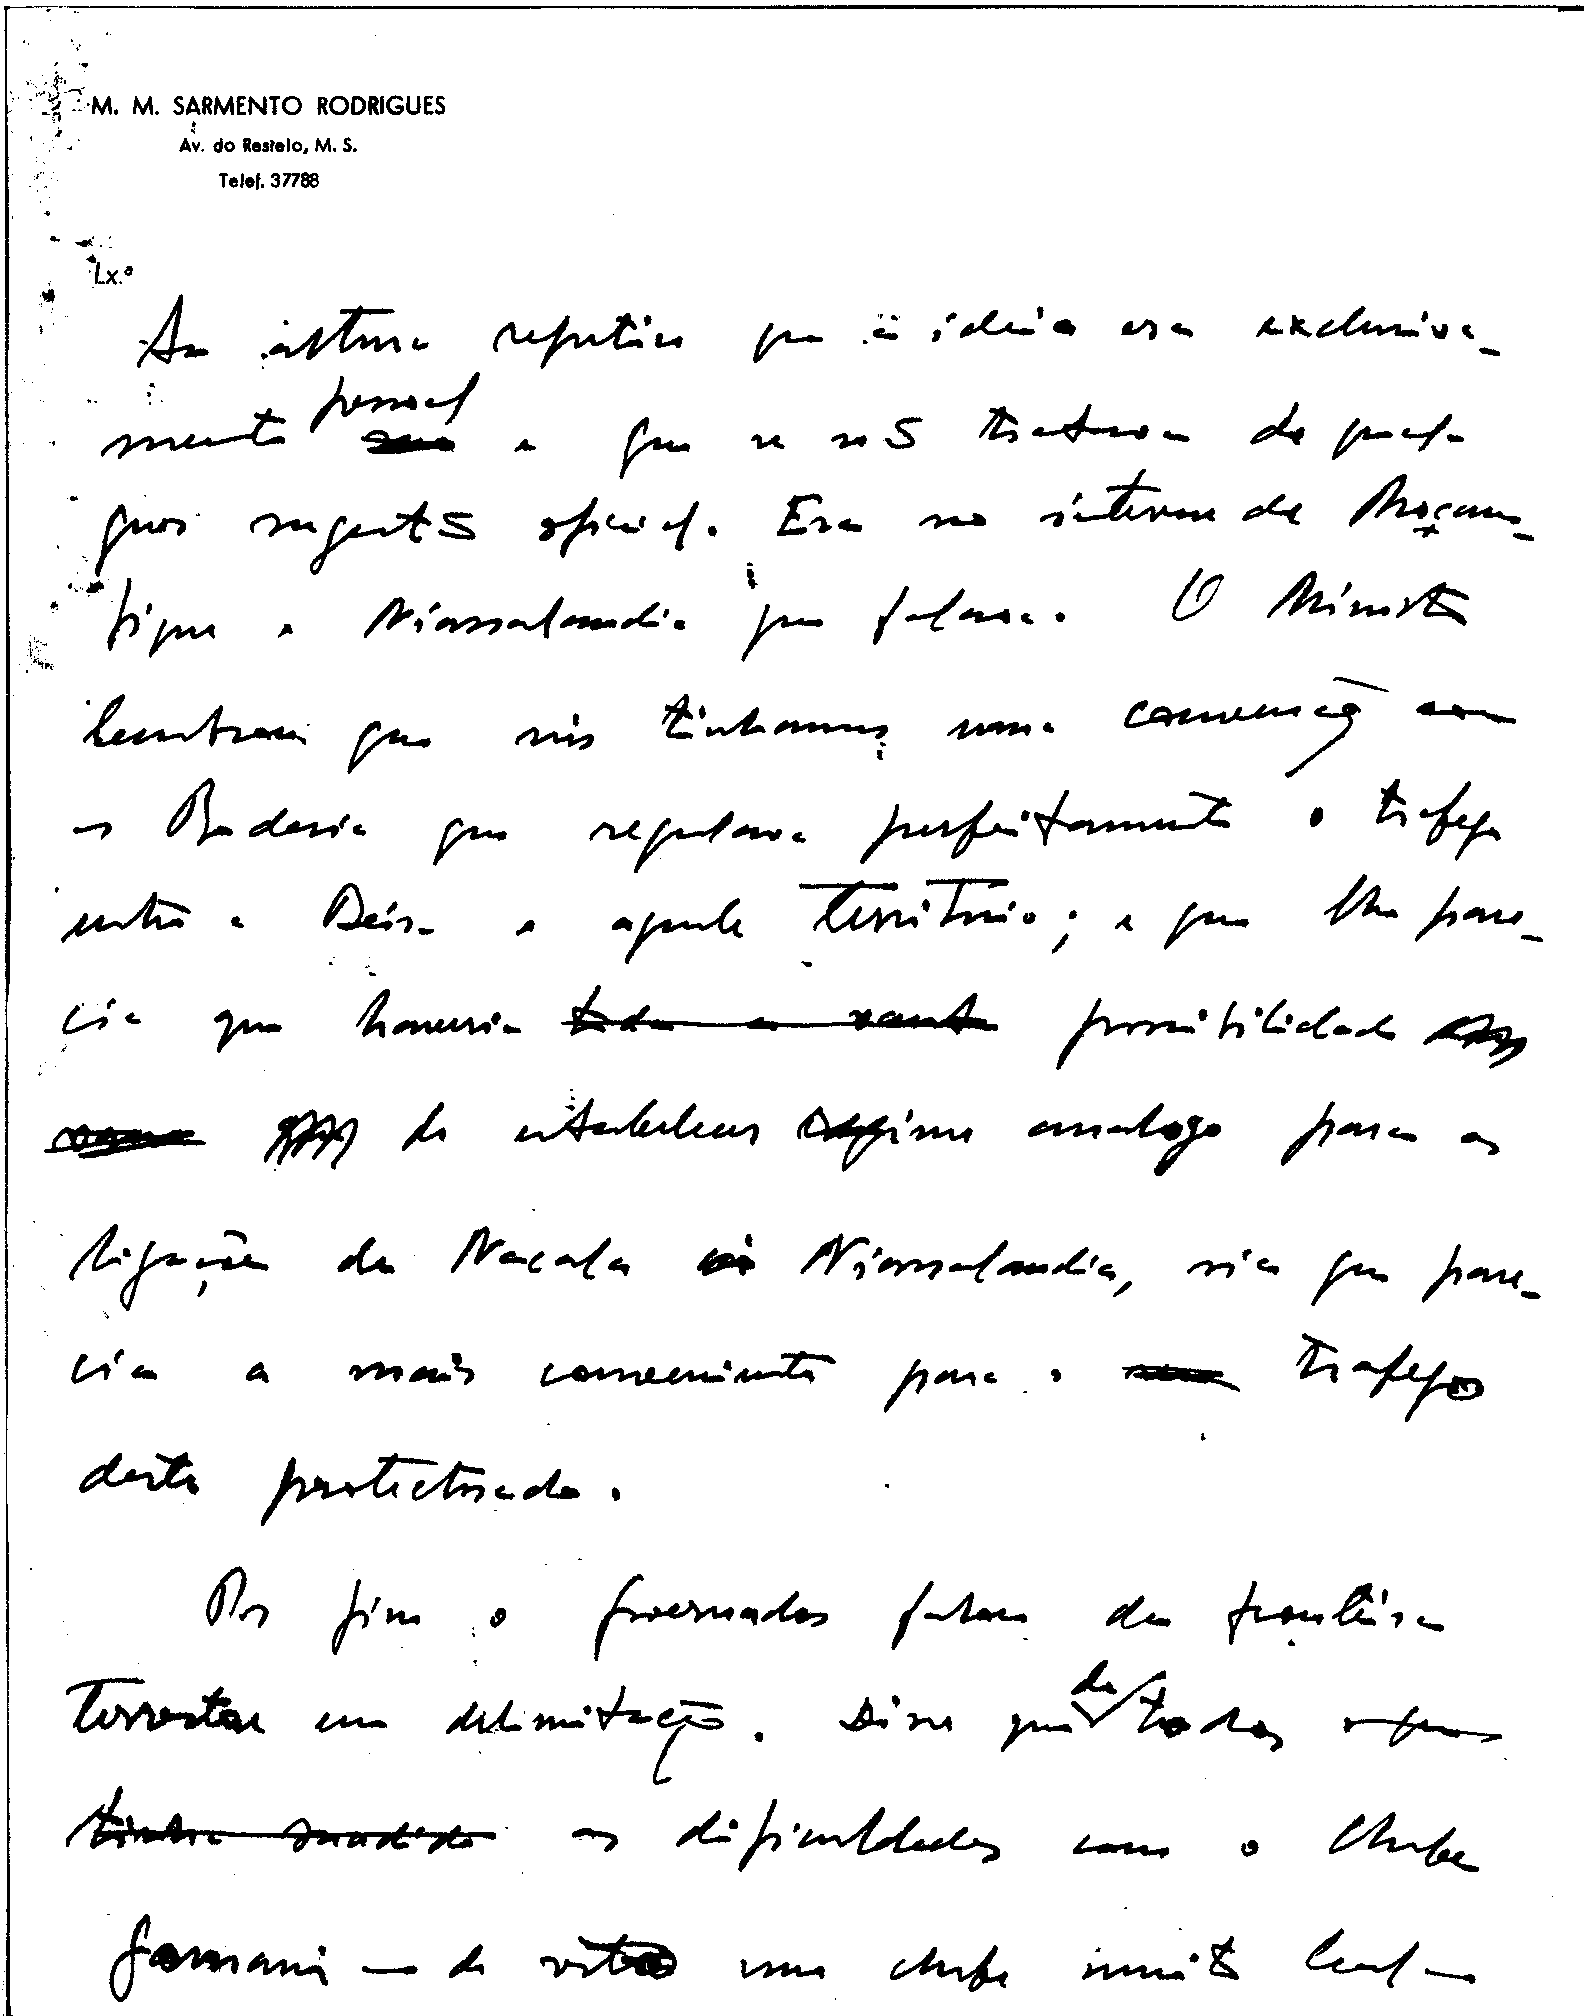 M. M. SARMENTO RODRIGUES
Av. do Restelo, M. S.
Telef. 37788
Lx.ª
Na altura repetiu que a ideia era exclusiva-
mente pessoal e que se não tratava de qual-
quer sugestão oficial. Era no interesse de Moçam-
bique e Niassalandia que falava. O Ministro
lembrou que nós tinhamos uma convenção com
as Rodesia que regulava perfeitamente o trafego
entre a Beira e aquele território; e que lhe pare-
cia que haveria toda a vant possibilidade
de estabelecer regime analogo para as
ligações de Nacala à Niassalandia, via que pare-
cia a mais conveniente para o trafego
deste protectorado.
Por fim o governador falou da fronteira
terrestre em delimitação. Disse que de todas
tinha as dificuldades com o chefe
Gomani — de resto um chefe muito leal —